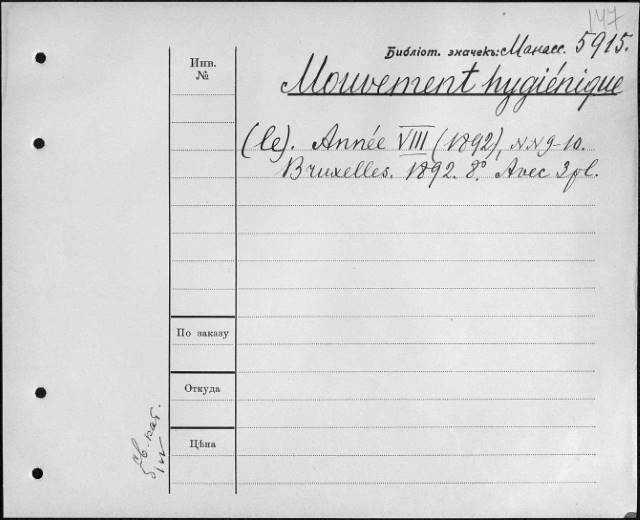 147
Библіот. значекъ: Манасс. 5915.
Инв.
№
Mouvement hygiénique
(le). Année VIII (1892), NN 9-10.
Bruxelles. 1892. 8° Avec 3 pl.
По заказу
Откуда
Цѣна